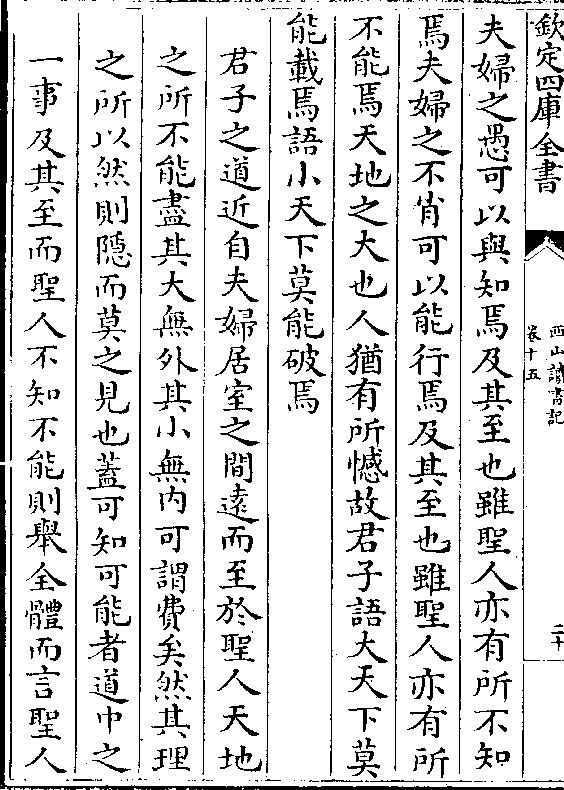 欽定四庫全書
西山讀書記
卷十五
二十
夫婦之愚可以與知焉及其至也雖聖人亦有所不知
焉夫婦之不肖可以能行焉及其至也雖聖人亦有所
不能焉天地之大也人猶有所憾故君子語大天下莫
能載焉語小天下莫能破焉
君子之道近自夫婦居室之間遠而至於聖人天地
之所不能盡其大無外其小無内可謂費矣然其理
之所以然則隱而莫之見也蓋可知可能者道中之
一事及其至而聖人不知不能則舉全體而言聖人